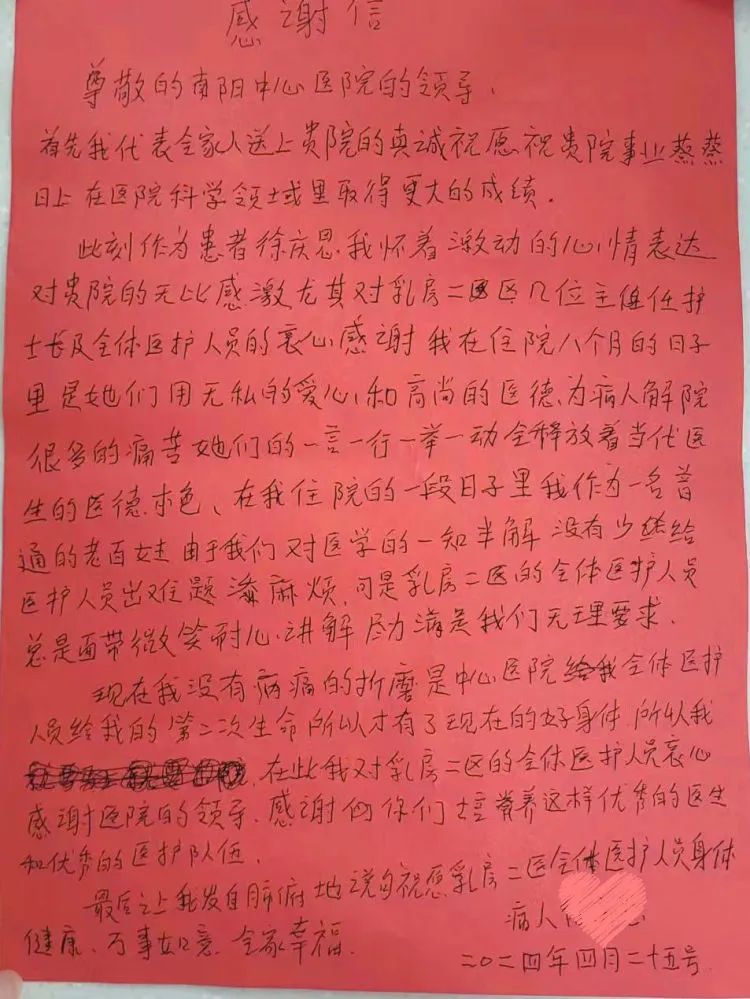 感谢信
尊敬的南阳中心医院的领导、
首先我代表全家人送上贵院的真诚祝愿、祝贵院事业蒸蒸
日上在医院科学领域里取得更大的成绩。
此刻作为患者徐庆恩、我怀着激动的心情表达
对贵院的无比感激尤其对乳房二区几位主任护
士长及全体医护人员的衷心感谢我在住院八个月的日子
里是她们用无私的爱心和高尚的医德、为病人解院
很多的痛苦她们的一言一行一举一动全释放着当代医
生的医德本色、在我住院的一段日子里我作为一名普
通的老百姓由于我们对医学的一知半解没有少给
医护人员出难题添麻烦、可是乳房二区的全体医护人员
总是面带微笑耐心讲解尽力满足我们无理要求、
现在我没有病痛的折磨是中心医院全体医护
人员给我的第二次生命所以才有了现在的好身体、所以我
在此我对乳房二区的全体医护人员衷心
感谢医院的领导、感谢你们培养这样优秀的医生
和优秀的医护队伍、
最后之上我发自肺俯地说句祝愿乳房二区全体医护人员身体
健康、万事如意、全家幸福、
病人
二〇二四年四月二十五号